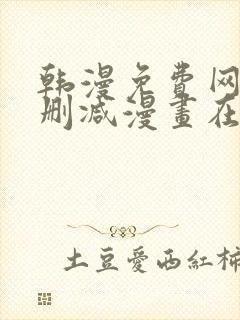 韩漫免费网
删减漫畫在
土豆愛西紅柿